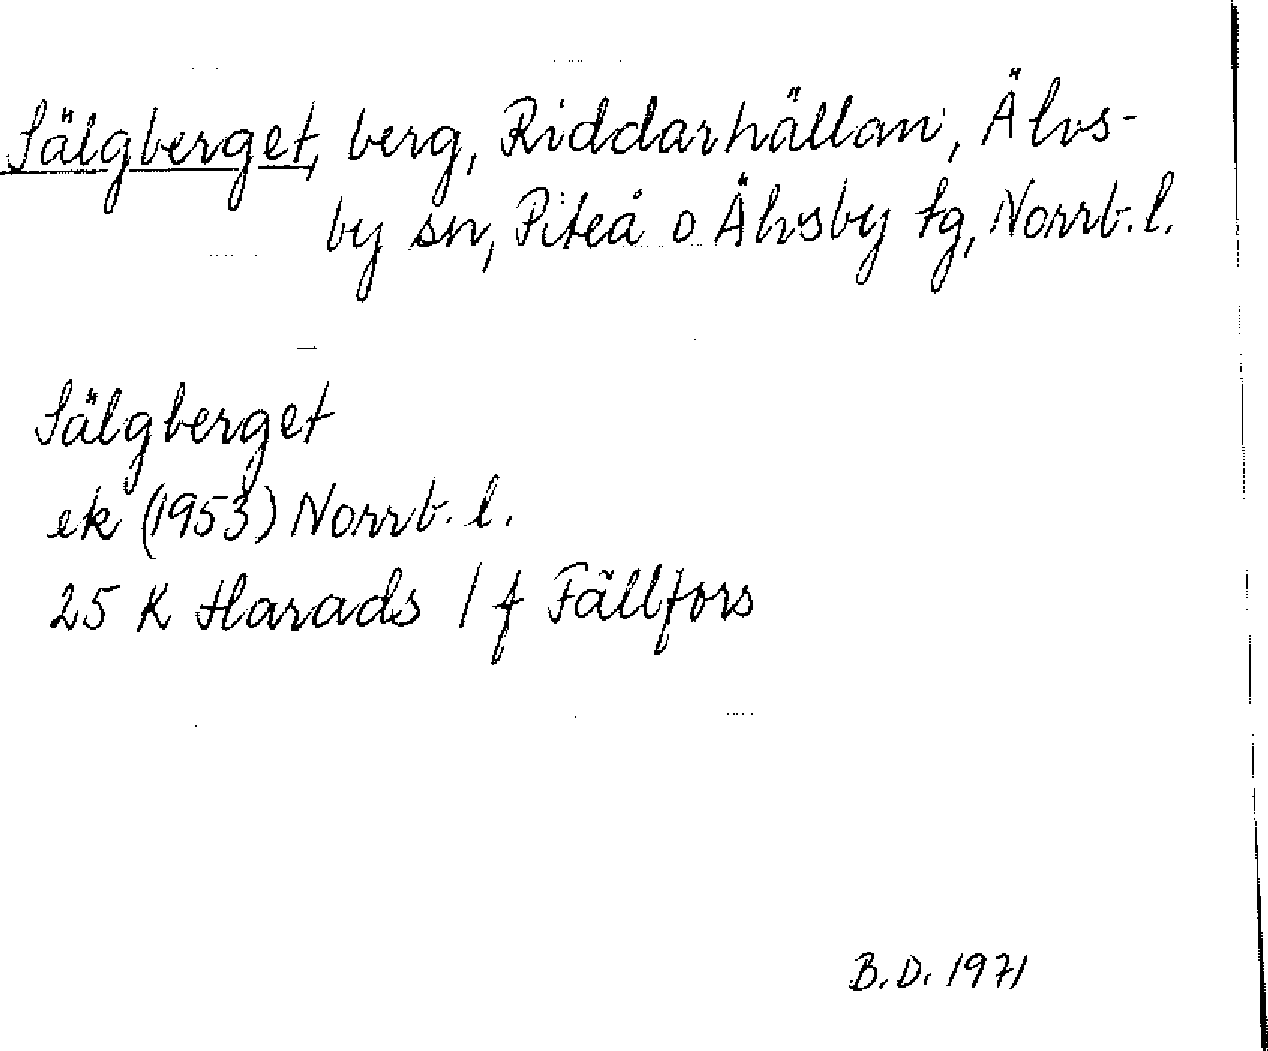 Sälgberget, berg, Riddarhällan, Älvs-
by sn, Piteå o Älvsby tg, Norrb. l.
Sälgberget
ek (1953) Norrb. l.
25 K Harads / f Fällfors
B.D. 1971